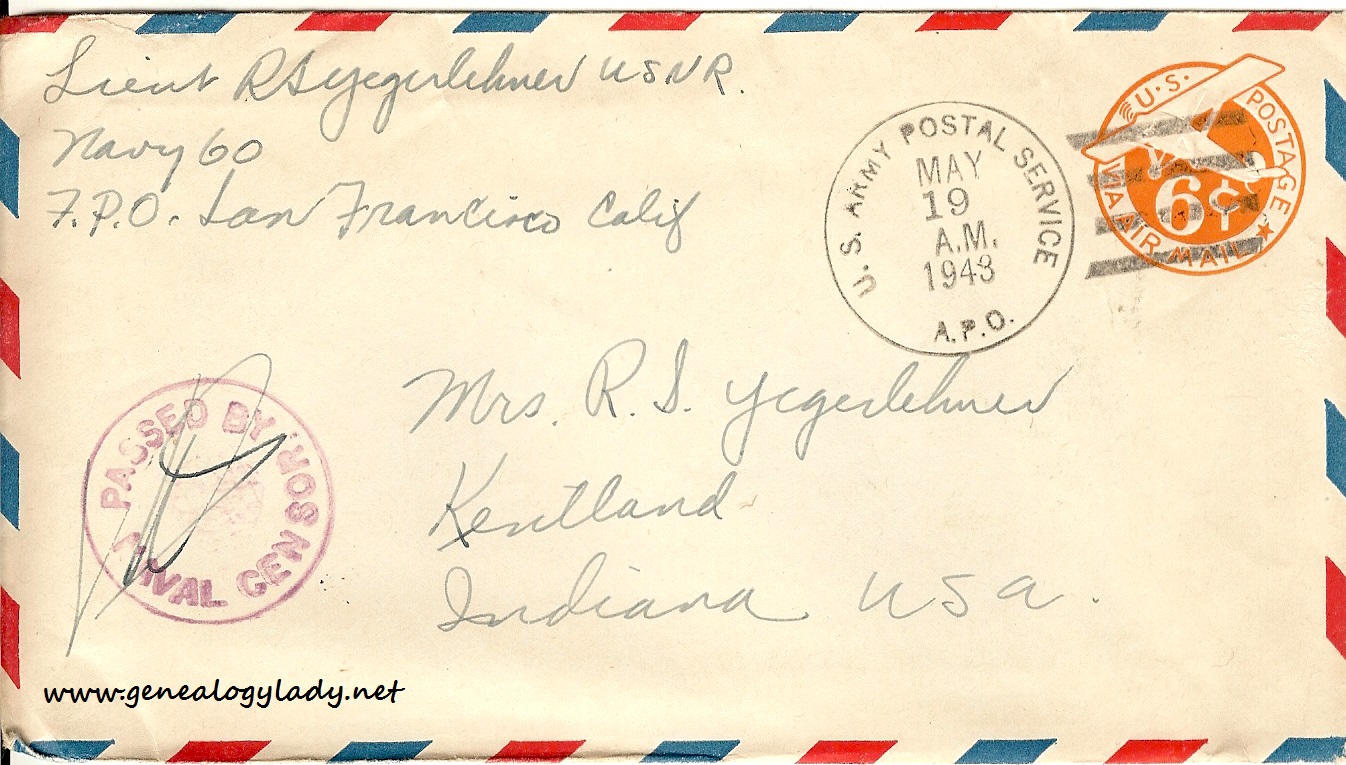 Lieut R S Yegerlehner USNR.
Navy 60
F.P.O. San Francisco Calif
U.S. ARMY POSTAL SERVICE
MAY
19
A.M.
1943
A.P.O.
U.S. POSTAGE
6¢
VIA AIR MAIL
PASSED BY
NAVAL CENSOR
Mrs. R. S. Yegerlehner
Kentland
Indiana USA.
www.genealogylady.net